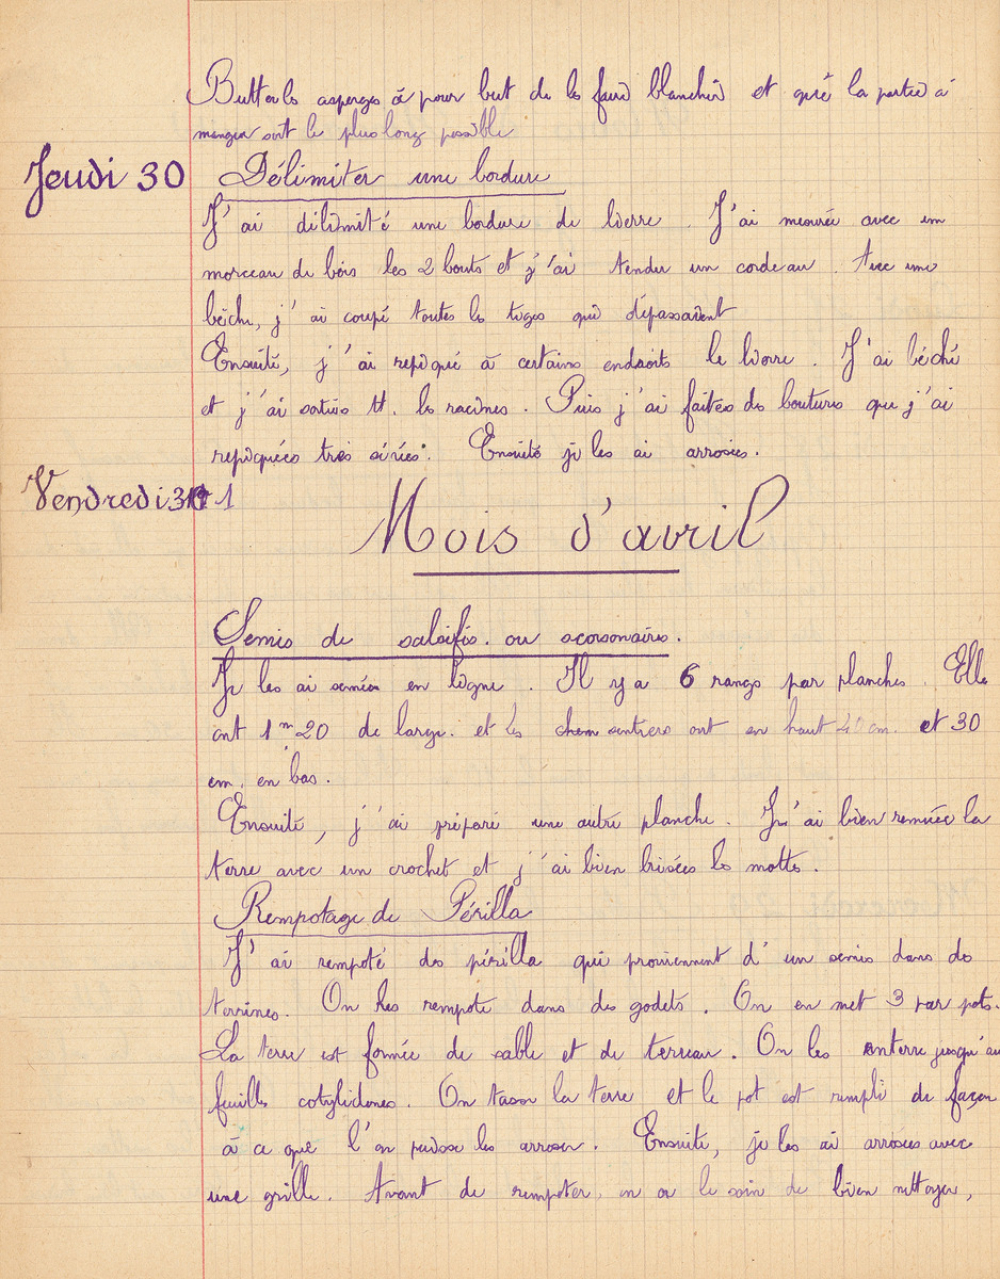 Butter les asperges à pour but de les faire blanchir et que la partie à
manger soit le plus long possible
Jeudi 30 Délimiter une bordure
J'ai délimité une bordure de lierre. J'ai mesurée avec un
morceau de bois les 2 bouts et j'ai tendu un cordeau. Avec une
bêche, j'ai coupé toutes les tiges qui dépassaient
Ensuite, j'ai repiqué à certains endroits le lierre. J'ai bêché
et j'ai sorties tt. les racines. Puis j'ai faites des boutures que j'ai
repiquées très sérées. Ensuite je les ai arrosées.
Vendredi 31 1
Mois d'avril
Semis de salsifis. ou scorsonaires.
Je les ai semées en ligne. Il y a 6 rangs par planches. Elle
ont 1m20 de large. et les chem sentiers ont en haut 40 cm. et 30
cm. en bas.
Ensuite, j'ai préparé une autre planche. J'ai bien remuée la
terre avec un crochet et j'ai bien brisées les mottes.
Rempotage de Périlla
J'ai rempoté des périlla qui proviennent d'un semis dans des
terrines. On les rempote dans des godets. On en met 3 par pots.
La terre est formée de sable et de terreau. On les enterre jusqu'au
feuilles cotylédones. On tasse la terre et le pot est rempli de façon
à ce que l'on puisse les arroser. Ensuite, je les ai arrosées avec
une grille. Avant de rempoter, on a le soin de bien nettoyer,